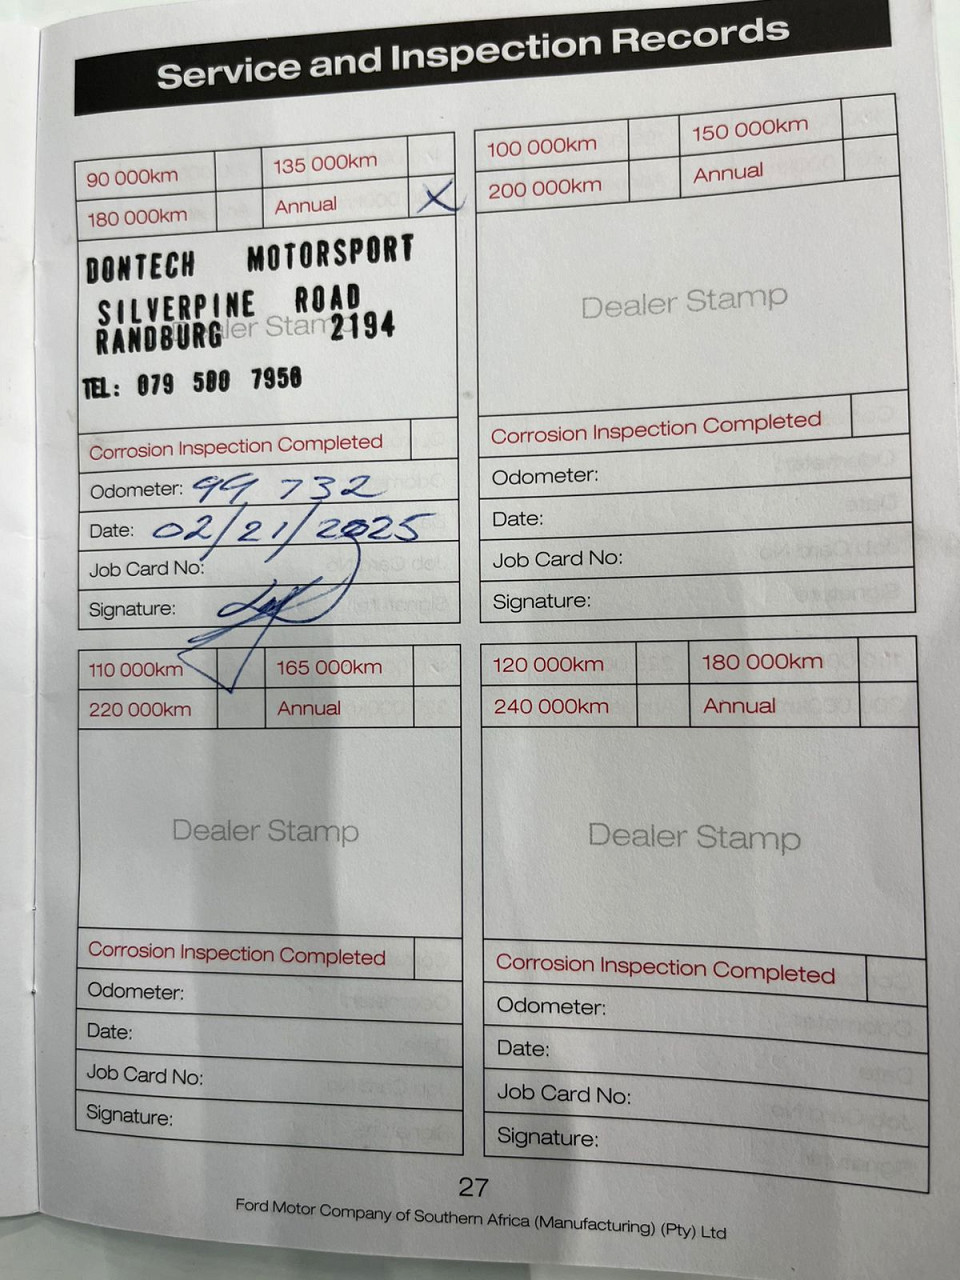 Service and Inspection Records
90 000km 135 000km
180 000km Annual X
DONTECH MOTORSPORT
SILVERPINE ROAD
RANDBURG 2194
Dealer Stamp
TEL: 079 500 7950
Corrosion Inspection Completed
Odometer: 99 732
Date: 02/21/2025
Job Card No:
Signature:
100 000km 150 000km
200 000km Annual
Dealer Stamp
Corrosion Inspection Completed
Odometer:
Date:
Job Card No:
Signature:
110 000km 165 000km
220 000km Annual
Dealer Stamp
Corrosion Inspection Completed
Odometer:
Date:
Job Card No:
Signature:
120 000km 180 000km
240 000km Annual
Dealer Stamp
Corrosion Inspection Completed
Odometer:
Date:
Job Card No:
Signature:
27
Ford Motor Company of Southern Africa (Manufacturing) (Pty) Ltd